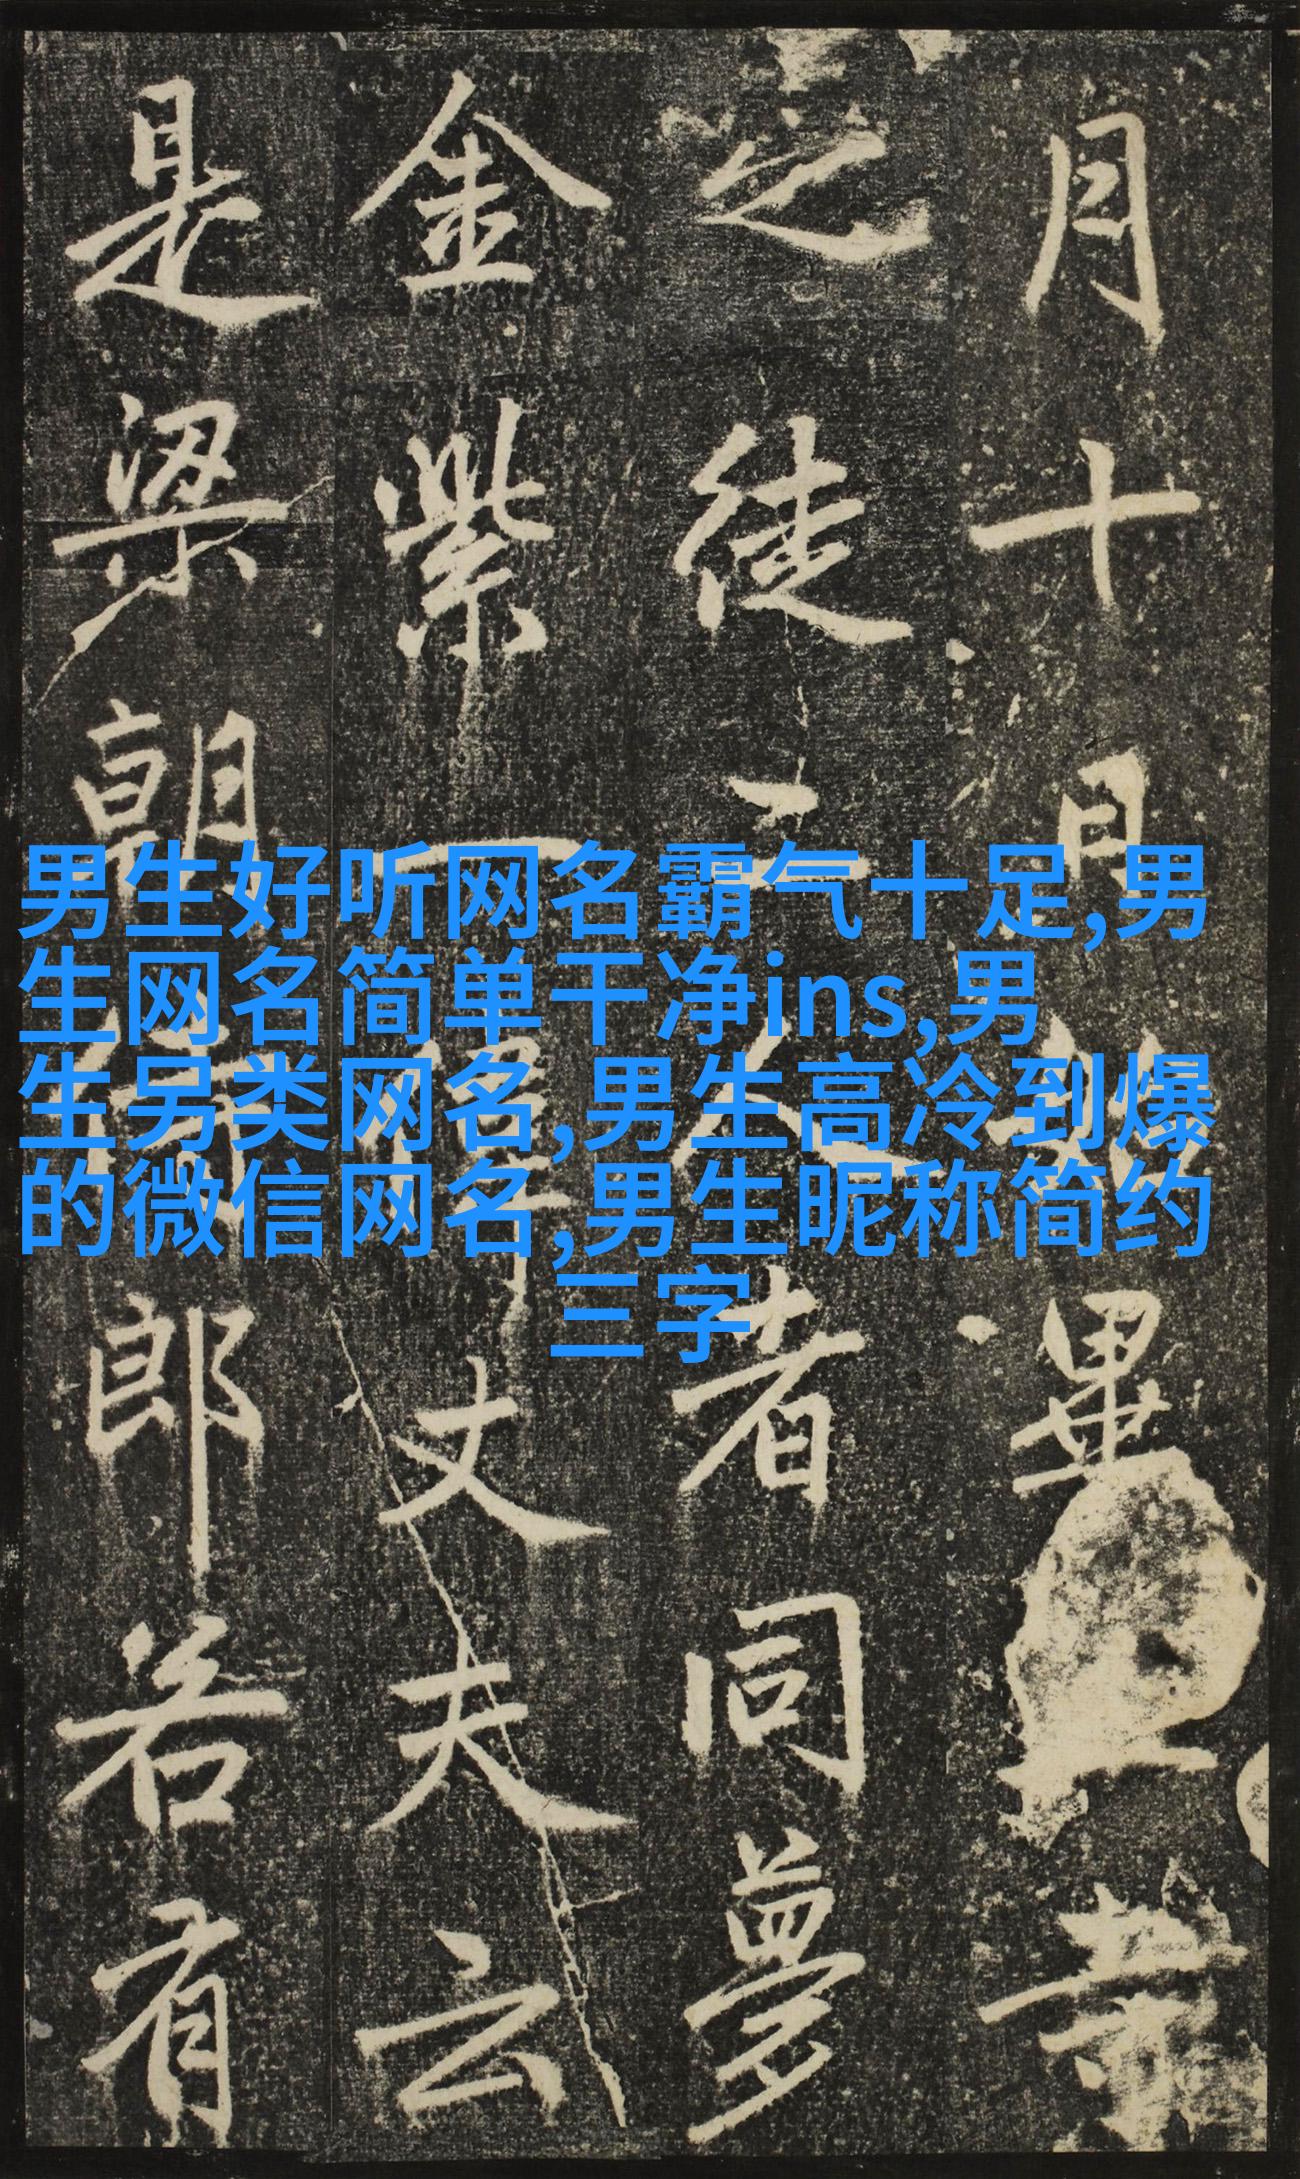 男生好听网名霸气十足,男
生网名简单干净ins,男
生另类网名,男生高冷到爆
的微信网名,男生昵称简约
三字
月十月功畢
之徒二人者同夢
金紫一偉丈夫云
是梁朝侍郎若有